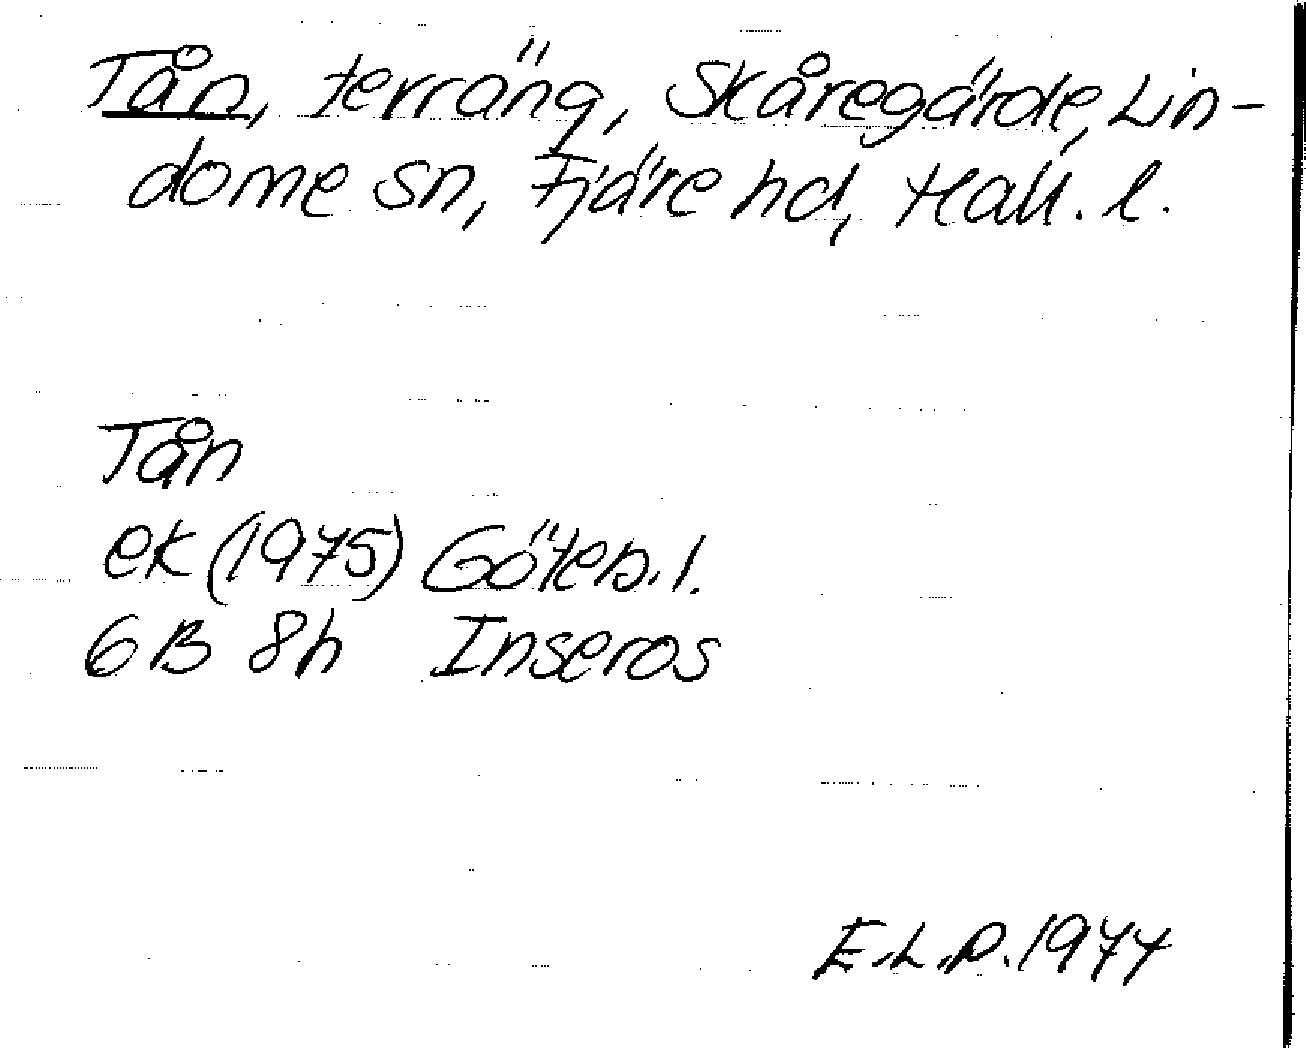 Tån, terräng, Skåregärde, Lin-
dome sn, Fjäre hd, Hall. l.
Tån
ek (1975) Göteb. l.
6B 8h Inseros
E.L.P. 1977